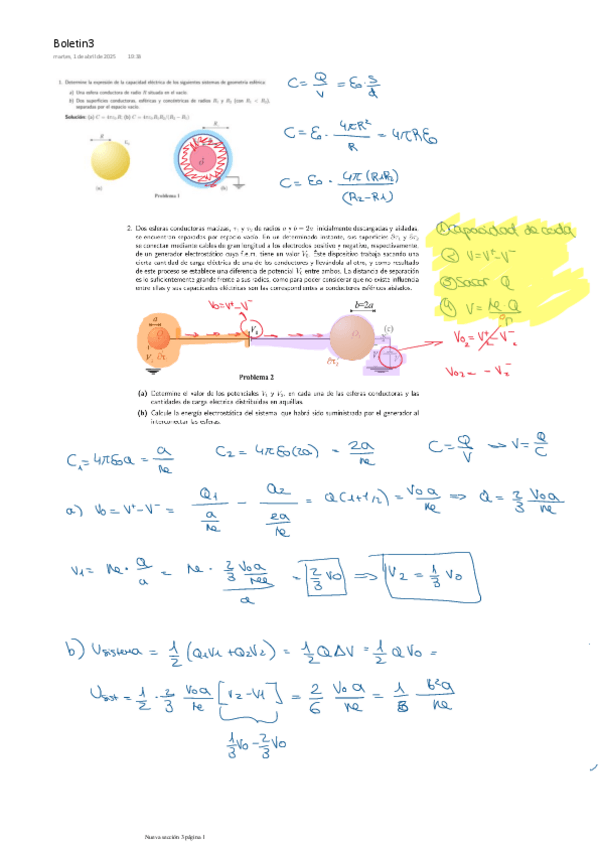 Boletin3
martes, 1 de abril de 2025 10:16
1. Determine la expresión de la capacidad eléctrica de los siguientes sistemas de geometría esférica:
a) Una esfera conductora de radio R situada en el vacío.
b) Dos superficies conductoras, esféricas y concéntricas de radios R₁ y R₂ (con R₁ < R₂), separadas por el espacio vacío.
Solución: (a) C = 4πε₀R; (b) C = 4πε₀R₁R₂/(R₂ − R₁)
C = Q/V = ε₀ · S/d
C = ε₀ · 4πR²/R = 4πRε₀
C = ε₀ · 4π(R1R2)/(R2−R1)
(a)
(b)
Problema 1
2. Dos esferas conductoras macizas,
de radios a y b = 2a inicialmente descargadas y aisladas,
se encuentran separadas por espacio vacío. En un determinado instante, sus superficies
se conectan mediante cables de gran longitud a los electrodos positivo y negativo, respectivamente,
de un generador electrostático cuya f.e.m. tiene un valor V₀. Este dispositivo trabaja sacando una
cierta cantidad de carga eléctrica de una de los conductores y llevándola al otro, y como resultado
de este proceso se establece una diferencia de potencial V₀ entre ambos. La distancia de separación
es lo suficientemente grande frente a sus radios, como para poder considerar que no existe influencia
entre ellas y sus capacidades eléctricas son las correspondientes a conductores esféricos aislados.
① Capacidad de cada
② V=V⁺-V⁻
③ Sacar Q
④ V =
V₀=V⁺-V⁻
a
b=2a
(c)
Problema 2
(a) Determine el valor de los potenciales V₁ y V₂, en cada una de las esferas conductoras y las
cantidades de carga eléctrica distribuidas en aquéllas.
(b) Calcule la energía electrostática del sistema, que habrá sido suministrada por el generador al
interconectar las esferas.
C₁=4πε₀a = a/ke
C₂ = 4πε₀(2a) = 2a/ke
C = Q/V → V = Q/C
a) V₀ = V⁺-V⁻ = Q1/(a/ke) − Q2/(2a/ke) = Q(1+1/2) = V₀a/ke ⇒ Q = 2/3 V₀a/ke
= 2/3 V₀ ⇒ V₂ = 1/3 V₀
b) Usistema = 1/2 (Q1V1 + Q2V2) = 1/2 Q ΔV = 1/2 Q V₀ =
1/3 V₀ − 2/3 V₀
Nueva sección 3 página 1